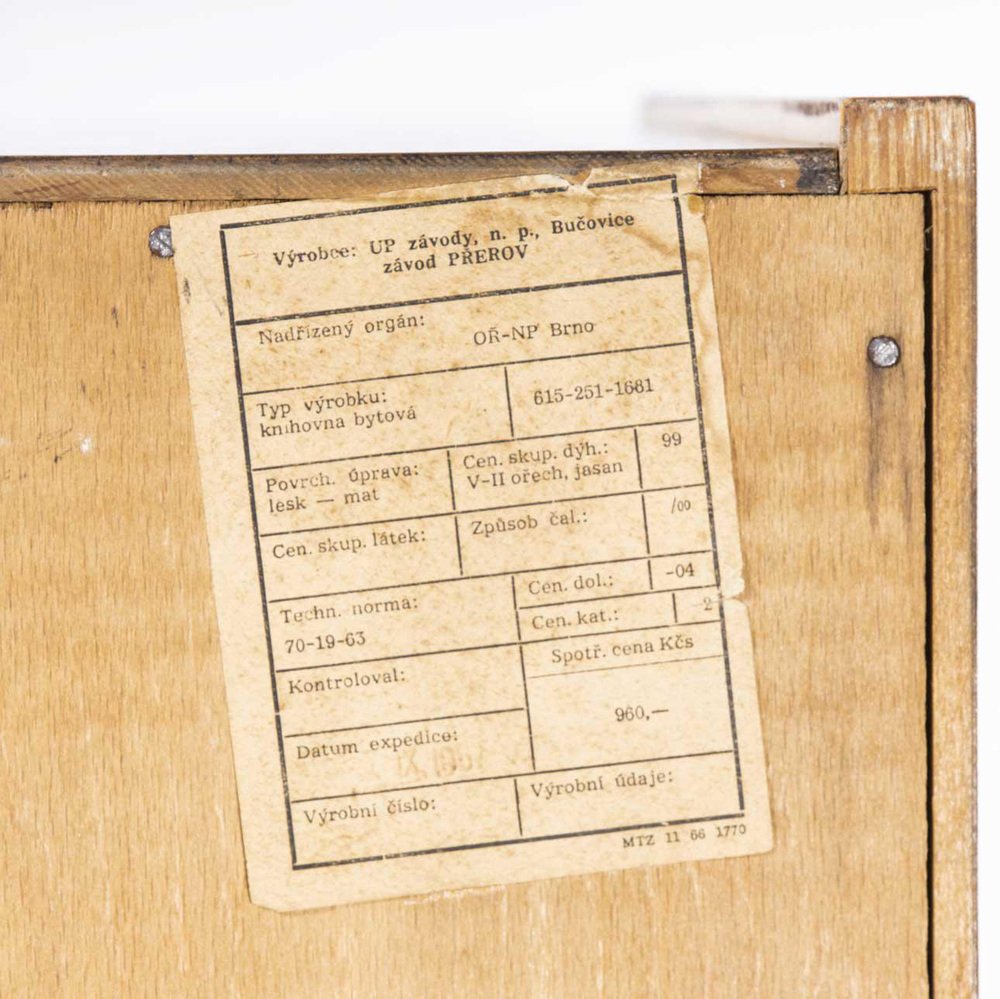 Výrobce: UP závody, n. p., Bučovice
závod PŘEROV
Nadřízený orgán:
OŘ-NP Brno
Typ výrobku:
knihovna bytová
615-251-1681
Povrch. úprava:
lesk — mat
Cen. skup. dýh.:
V-II ořech, jasan
99
Cen. skup. látek:
Způsob čal.:
/00
Techn. norma:
70-19-63
Cen. dol.:
-04
Cen. kat.:
2
Kontroloval:
Spotř. cena Kčs
960,—
Datum expedice:
Výrobní číslo:
Výrobní údaje:
MTZ 11 66 1770